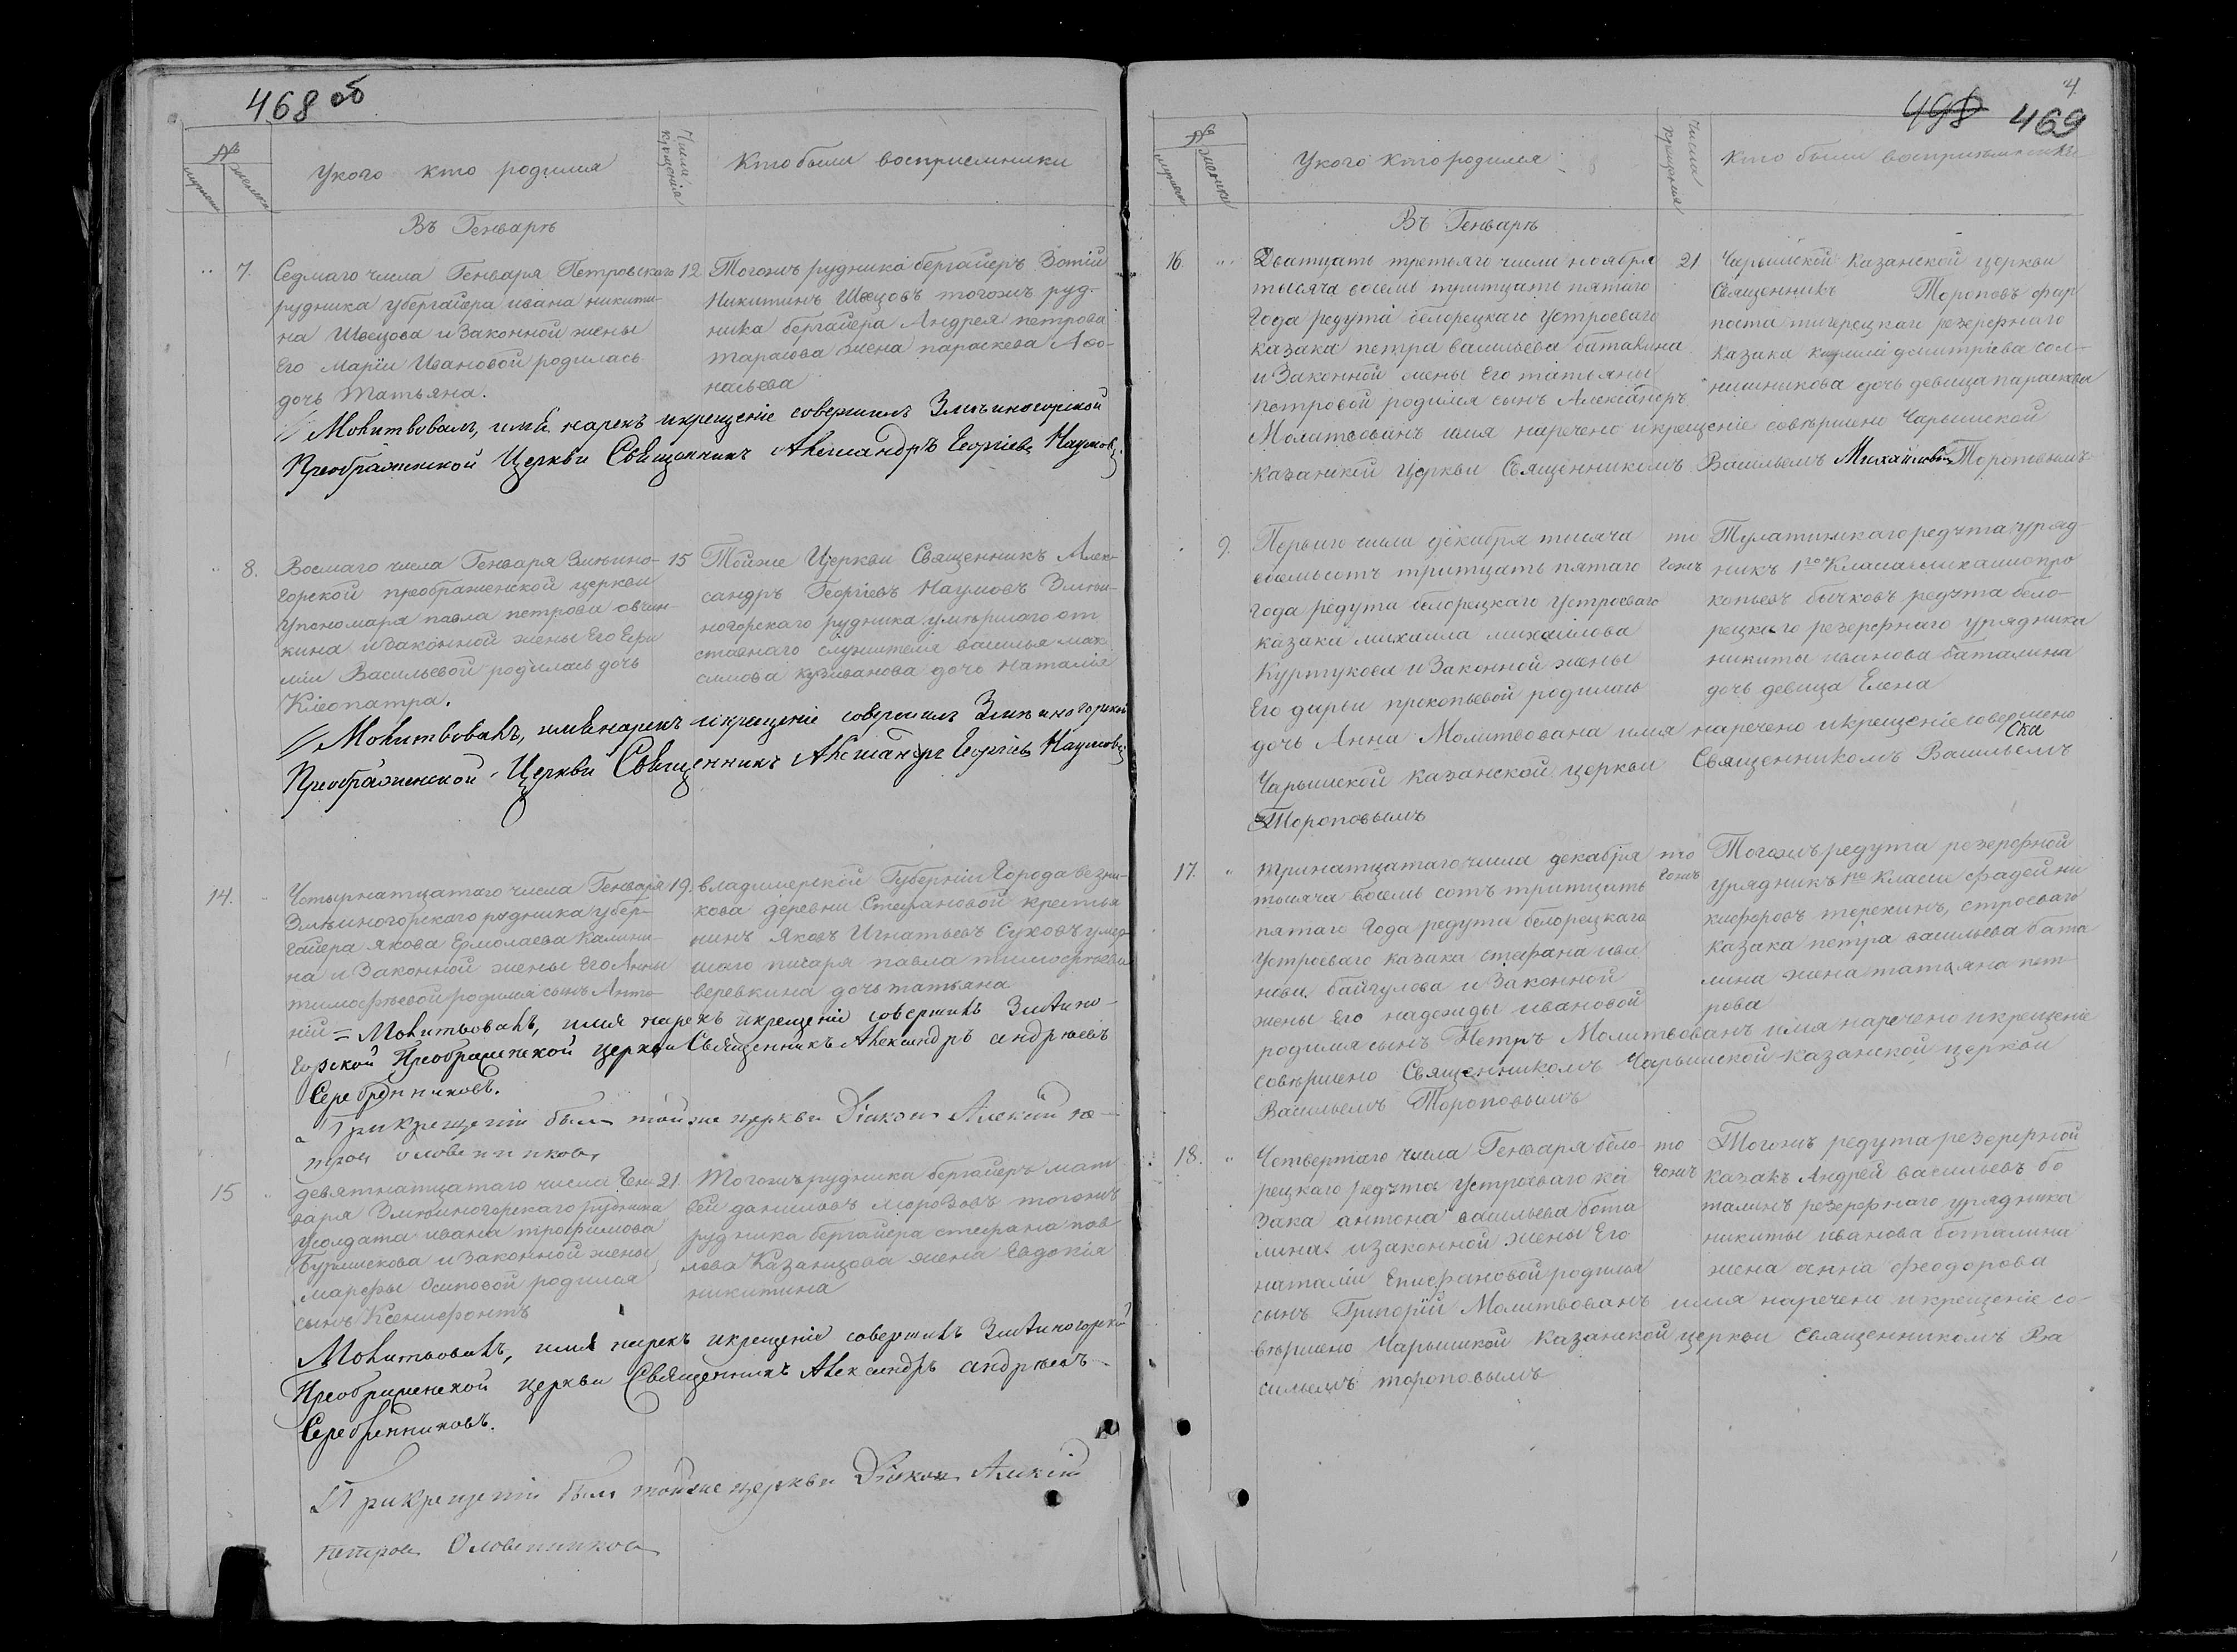 468 об
№
мужеска
женска
У кого кто родился
Числа крещенія
Кто были восприемники
Въ Генварѣ
7. Седмаго числа Генваря Петровскаго
рудника убергайера ивана никити-
на Швецова и Законной жены
Его Маріи Ивановой родилась
дочь Татьяна.
12 Тогожъ рудника бергайеръ Зотій
Никитинъ Швецовъ тогожъ руд-
ника бергайера Андрея петрова
тарасова жена параскева Афо-
насьева
Молитвовалъ, имя нарекъ и крещеніе совершилъ Змѣиногорской
Преображенской Церкви Священникъ Александръ Георгіевъ Наумовъ.
8. Восмаго числа Генваря Змѣино-
горской преображенской церкви
у пономаря павла петрова овчин-
кина и законной жены Его Ери
міи Васильевой родилась дочь
Клеопатра.
15 Тойже Церкви Священникъ Алек-
сандръ Георгіевъ Наумовъ Змѣи-
ногорскаго рудника умершаго от
ставнаго служителя василья мак
симова кузиванова дочь Наталья
Молитвовалъ, имя нарекъ и крещеніе совершилъ Змѣиногорской
Преображенской Церкви Священникъ Александръ Георгіевъ Наумовъ
14. Четырнатцатаго числа Генваря
Змѣиногорскаго рудника убер-
гайера якова Ермолаева Калини-
на и Законной жены Его Анны
тимофѣевой родился сынъ Анто-
ній
19. владимерской Губерніи Города везни-
кова деревни Стефановой крестья
нинъ Яковъ Игнатьевъ Суховъ умер-
шаго писаря павла тимофѣева
веревкина дочь татьяна
= Молитвовалъ, имя нарекъ и крещеніе совершилъ Змѣино-
горской Преображенской церкви Священникъ Александръ андрѣевъ
Серебренниковъ.
При крещеніи былъ тойже церкви Діаконъ Алексій пе-
тровъ оловенниковъ
15 девятнатцатаго числа Ген-
варя Змѣиногорскаго рудника
у солдата ивана трофимова
Бурмискова и законной жены
марфы Осиповой родился
сынъ Ксенифонтъ
21. Тогожъ рудника бергайеръ мат
вей даниловъ морозовъ тогожъ
рудника бергайера стефана пав
лова Казанцова жена Евдокія
никитина
Молитвовалъ, имя нарекъ и крещеніе совершилъ Змѣиногорской
Преображенской церкви Священникъ Александръ андрѣевъ
Серебренниковъ.
При крещеніи былъ тойже церкви Діаконъ Алексій
петровъ Оловенниковъ
4
498 469
№
мужеска
женска
У кого кто родился
Числа крещенія
Кто были восприемники
Въ Генварѣ
16. Дватцать третьяго числа ноября
тысяча восемь тритцать пятаго
Года редута белорецкаго у строеваго
казака петра васильева баталина
и Законной жены Его татьяны
петровой родился сынъ Александръ
21 Чарышской Казанской церкви
Священникъ Тороповъ фар
поста тигерецкаго резерфнаго
казака дмитріева сол-
нишникова дочь девица параскева
Молитвованъ имя наречено и крещеніе совѣршено Чарышской
казанской церкви Священникомъ Васильемъ Михайловымъ Тороповымъ
9. Перваго числа декабря тысяча
восемьсотъ тритцать пятаго
года редута белорецкаго у строеваго
казака михаила михайлова
Куртукова и Законной жены
Его дарьи прокопьевой родилась
то гожъ Тулатинскаго редута уряд-
никъ 1го Класа про
копьевъ бычковъ редута бело-
рецкаго резерфнаго урядника
никиты иванова баталина
дочь девица Елена
дочь Анна Молитвована имя наречено и крещеніе совершено
Чарышской казанской церкви Священникомъ Васильемъ
Тороповымъ
17. тринатцатаго числа декабря
тысяча восемь сотъ тритцать
пятаго Года редута белорецкаго
у строеваго казака стефана ива
нова байгулова и Законной
жены Его надежды ивановой
то гожъ Тогожъ редута резерфной
урядникъ 1го Класа фадей ни
кифоровъ терехинъ, строеваго
казака петра васильева бата
лина жена татьяна пет-
рова
родился сынъ Петръ Молитвованъ имя наречено и крещеніе
совѣршено Священникомъ Чарышской казанской церкви
Васильемъ Тороповымъ
18. Четвертаго числа Генваря бело-
рецкаго редута у строеваго ка
зака антона васильева бота
лина и законной жены Его
наталіи Епифановой родился
то гожъ Тогожъ редута резерфной
казакъ Андрей васильевъ бо
талинъ резерфнаго урядника
никиты иванова боталина
жена анна феодорова
сынъ Григорій Молитвованъ имя наречено и крещеніе со-
вѣршено Чарышской Казанской церкви священникомъ Ва
сильемъ тороповымъ